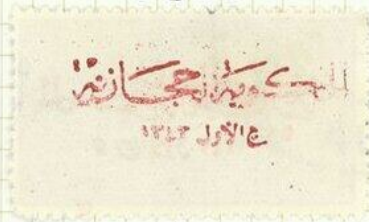 الحكومة الحجازية
ع الاول ١٣٤٣